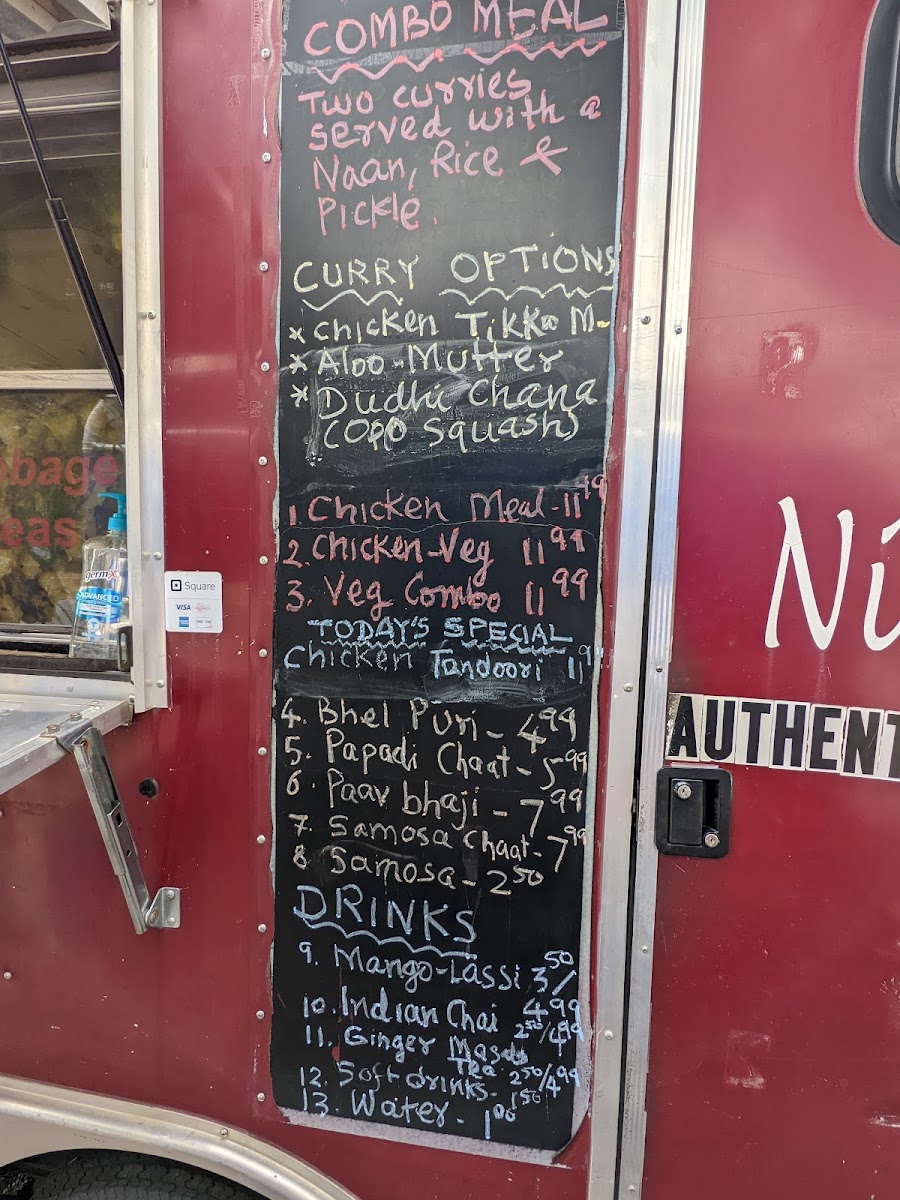 COMBO MEAL
Two curries
served with a
Naan, Rice &
Pickle.
CURRY OPTIONS
* Chicken Tikka M-
* Aloo-Mutter
* Dudhi Chana
(OPO Squash)
1. Chicken Meal - 11 99
2. Chicken-Veg 11 99
3. Veg Combo 11 99
TODAY'S SPECIAL
Chicken Tandoori 11 9
4. Bhel Puri - 4 99
5. Papadi Chaat - 5 99
6. Paav bhaji - 7 99
7. Samosa Chaat - 7 99
8. Samosa - 2 50
DRINKS
9. Mango-Lassi 3 50/
4 99
10. Indian Chai 2 50/4 99
11. Ginger Masala
Tea 2 50/4 99
12. Soft drinks - 1 50
13. Water - 1 00
bbage
eas
germ-X
ADVANCED
Square
VISA
Ni
AUTHENT